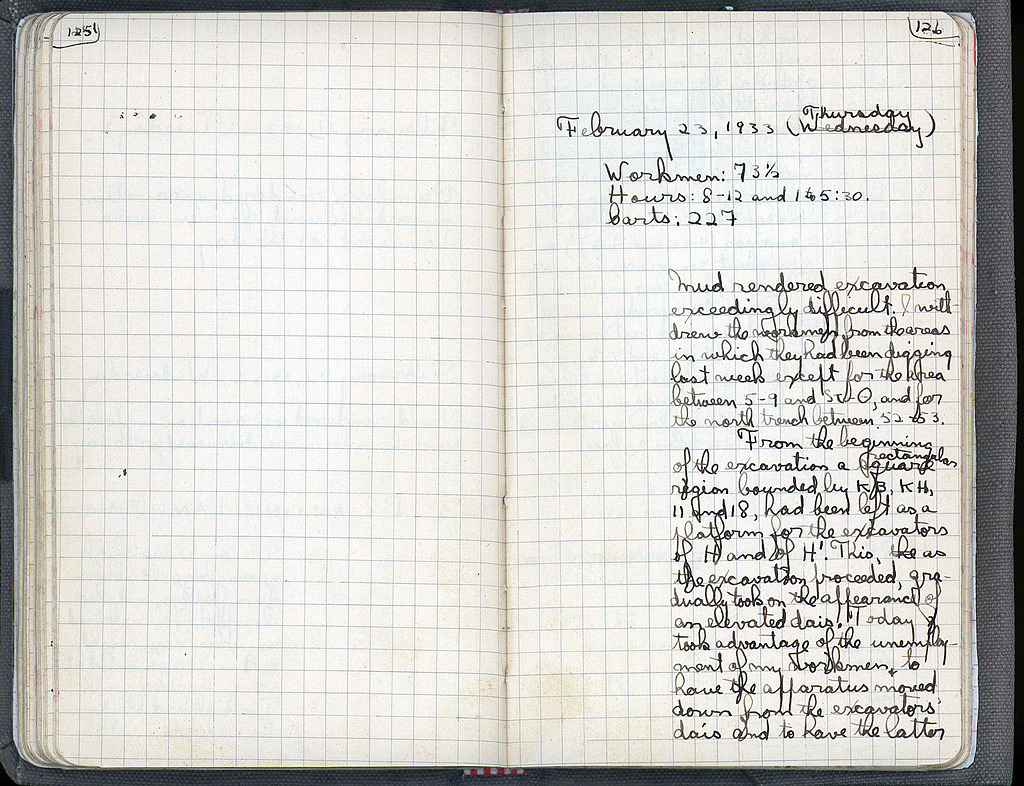 125
126
February 23, 1933 (Wednesday)
Thursday
Workmen: 73½
Hours: 8-12 and 1 to 5:30.
Carts: 227
Mud rendered excavation
exceedingly difficult. I with-
drew the workmen from the areas
in which they had been digging
last week except for the area
between 5-9 and and for
the north trench between 52-53.
From the beginning
of the excavation a square
rectangular
region bounded by KB, KH,
11 and 18, had been left as a
platform for the excavators
of H and of H'. This, the as
the excavation proceeded, gra-
dually took on the appearance of
an elevated dais. Today I
took advantage of the unemploy-
ment of my workmen to
have the apparatus moved
down from the excavators'
dais and to have the latter